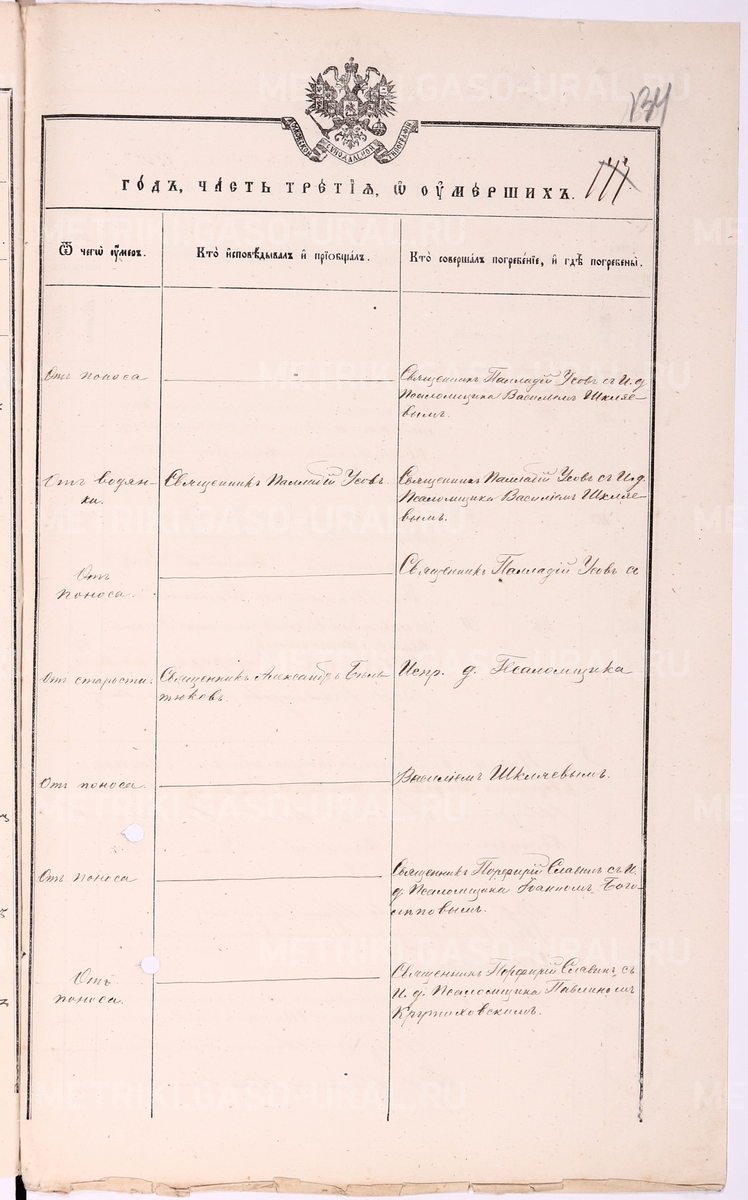 134
МОСКОВСКОЙ СѴНОДАЛЬНОЙ ТИПОГРАФІИ
ГО́ДЪ, ЧА́СТЬ ТРЕ́ТІѦ, Ѡ҆ ОУ҆МЕ́РШИХЪ.
Ѿ чегѡ̀ оу҆́меръ.
Кто̀ и҆сповѣ́дывалъ и҆ прїѻбща́лъ.
Кто̀ соверша́лъ погребе́нїе, и҆ гдѣ̀ погребены̀.
Отъ поноса
Священникъ Палладій Усовъ съ И. д.
Псаломщика Василіемъ Шкляе-
вымъ.
Отъ водян-
ки.
Священникъ Палладій Усовъ.
Священникъ Палладій Усовъ съ И. д.
Псаломщика Василіемъ Шкляе-
вымъ.
Отъ
поноса.
Священникъ Палладій Усовъ съ
Отъ старости.
Священникъ Александръ Бѣль-
тюковъ.
Испр. д. Псаломщика
Отъ поноса.
Василіемъ Шкляевымъ.
Отъ поноса
Священникъ Порфирій Славинъ съ И.
д. Псаломщика Іоанномъ
Отъ
поноса.
Священникъ Порфирій Славинъ съ
И. д. Псаломщика Павлиномъ
Крутоховскимъ.
METRIKI.GASO-URAL.RU